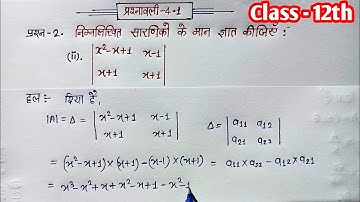 प्रश्नावली-4.1
Class - 12th
प्रश्न-2. निम्नलिखित सारणिकों के मान ज्ञात कीजिएँ :
(ii). | x²-x+1 x-1 |
| x+1 x+1 |
हल:- दिया है,
|A| = Δ = | x²-x+1 x-1 | Δ = | a₁₁ a₁₂ |
| x+1 x+1 | | a₂₁ a₂₂ |
= (x²-x+1) × (x+1) - (x-1) × (x+1) = a₁₁ × a₂₂ - a₁₂ × a₂₁
= x³-x²+x+x²-x+1 - x²-1